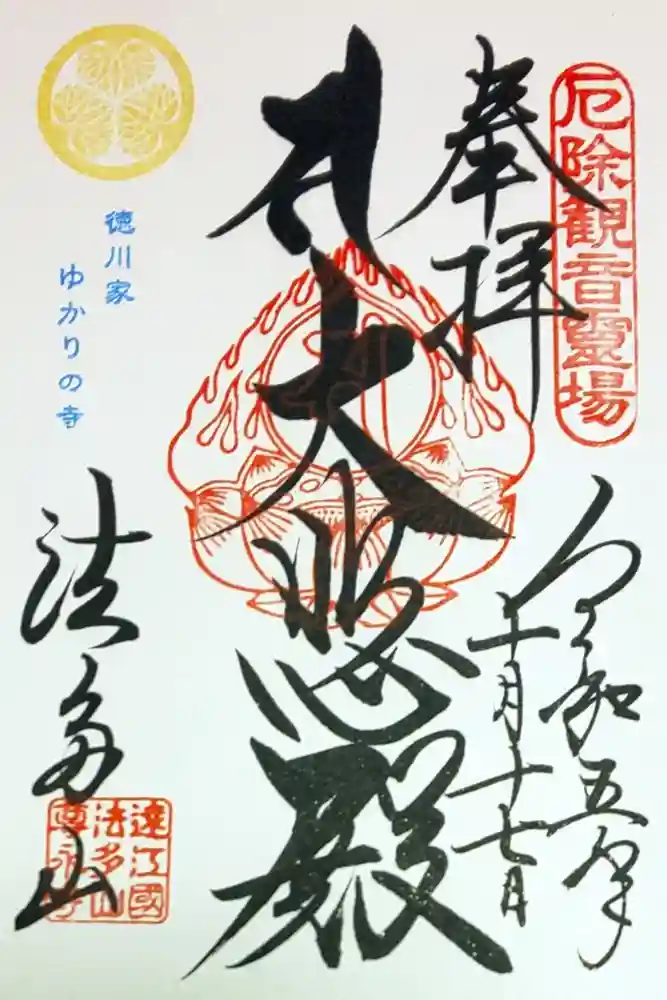 厄除観音霊場
奉拝
令和五年
十月十七日
大悲殿
徳川家
ゆかりの寺
法多山
遠江國
法多山
尊永寺